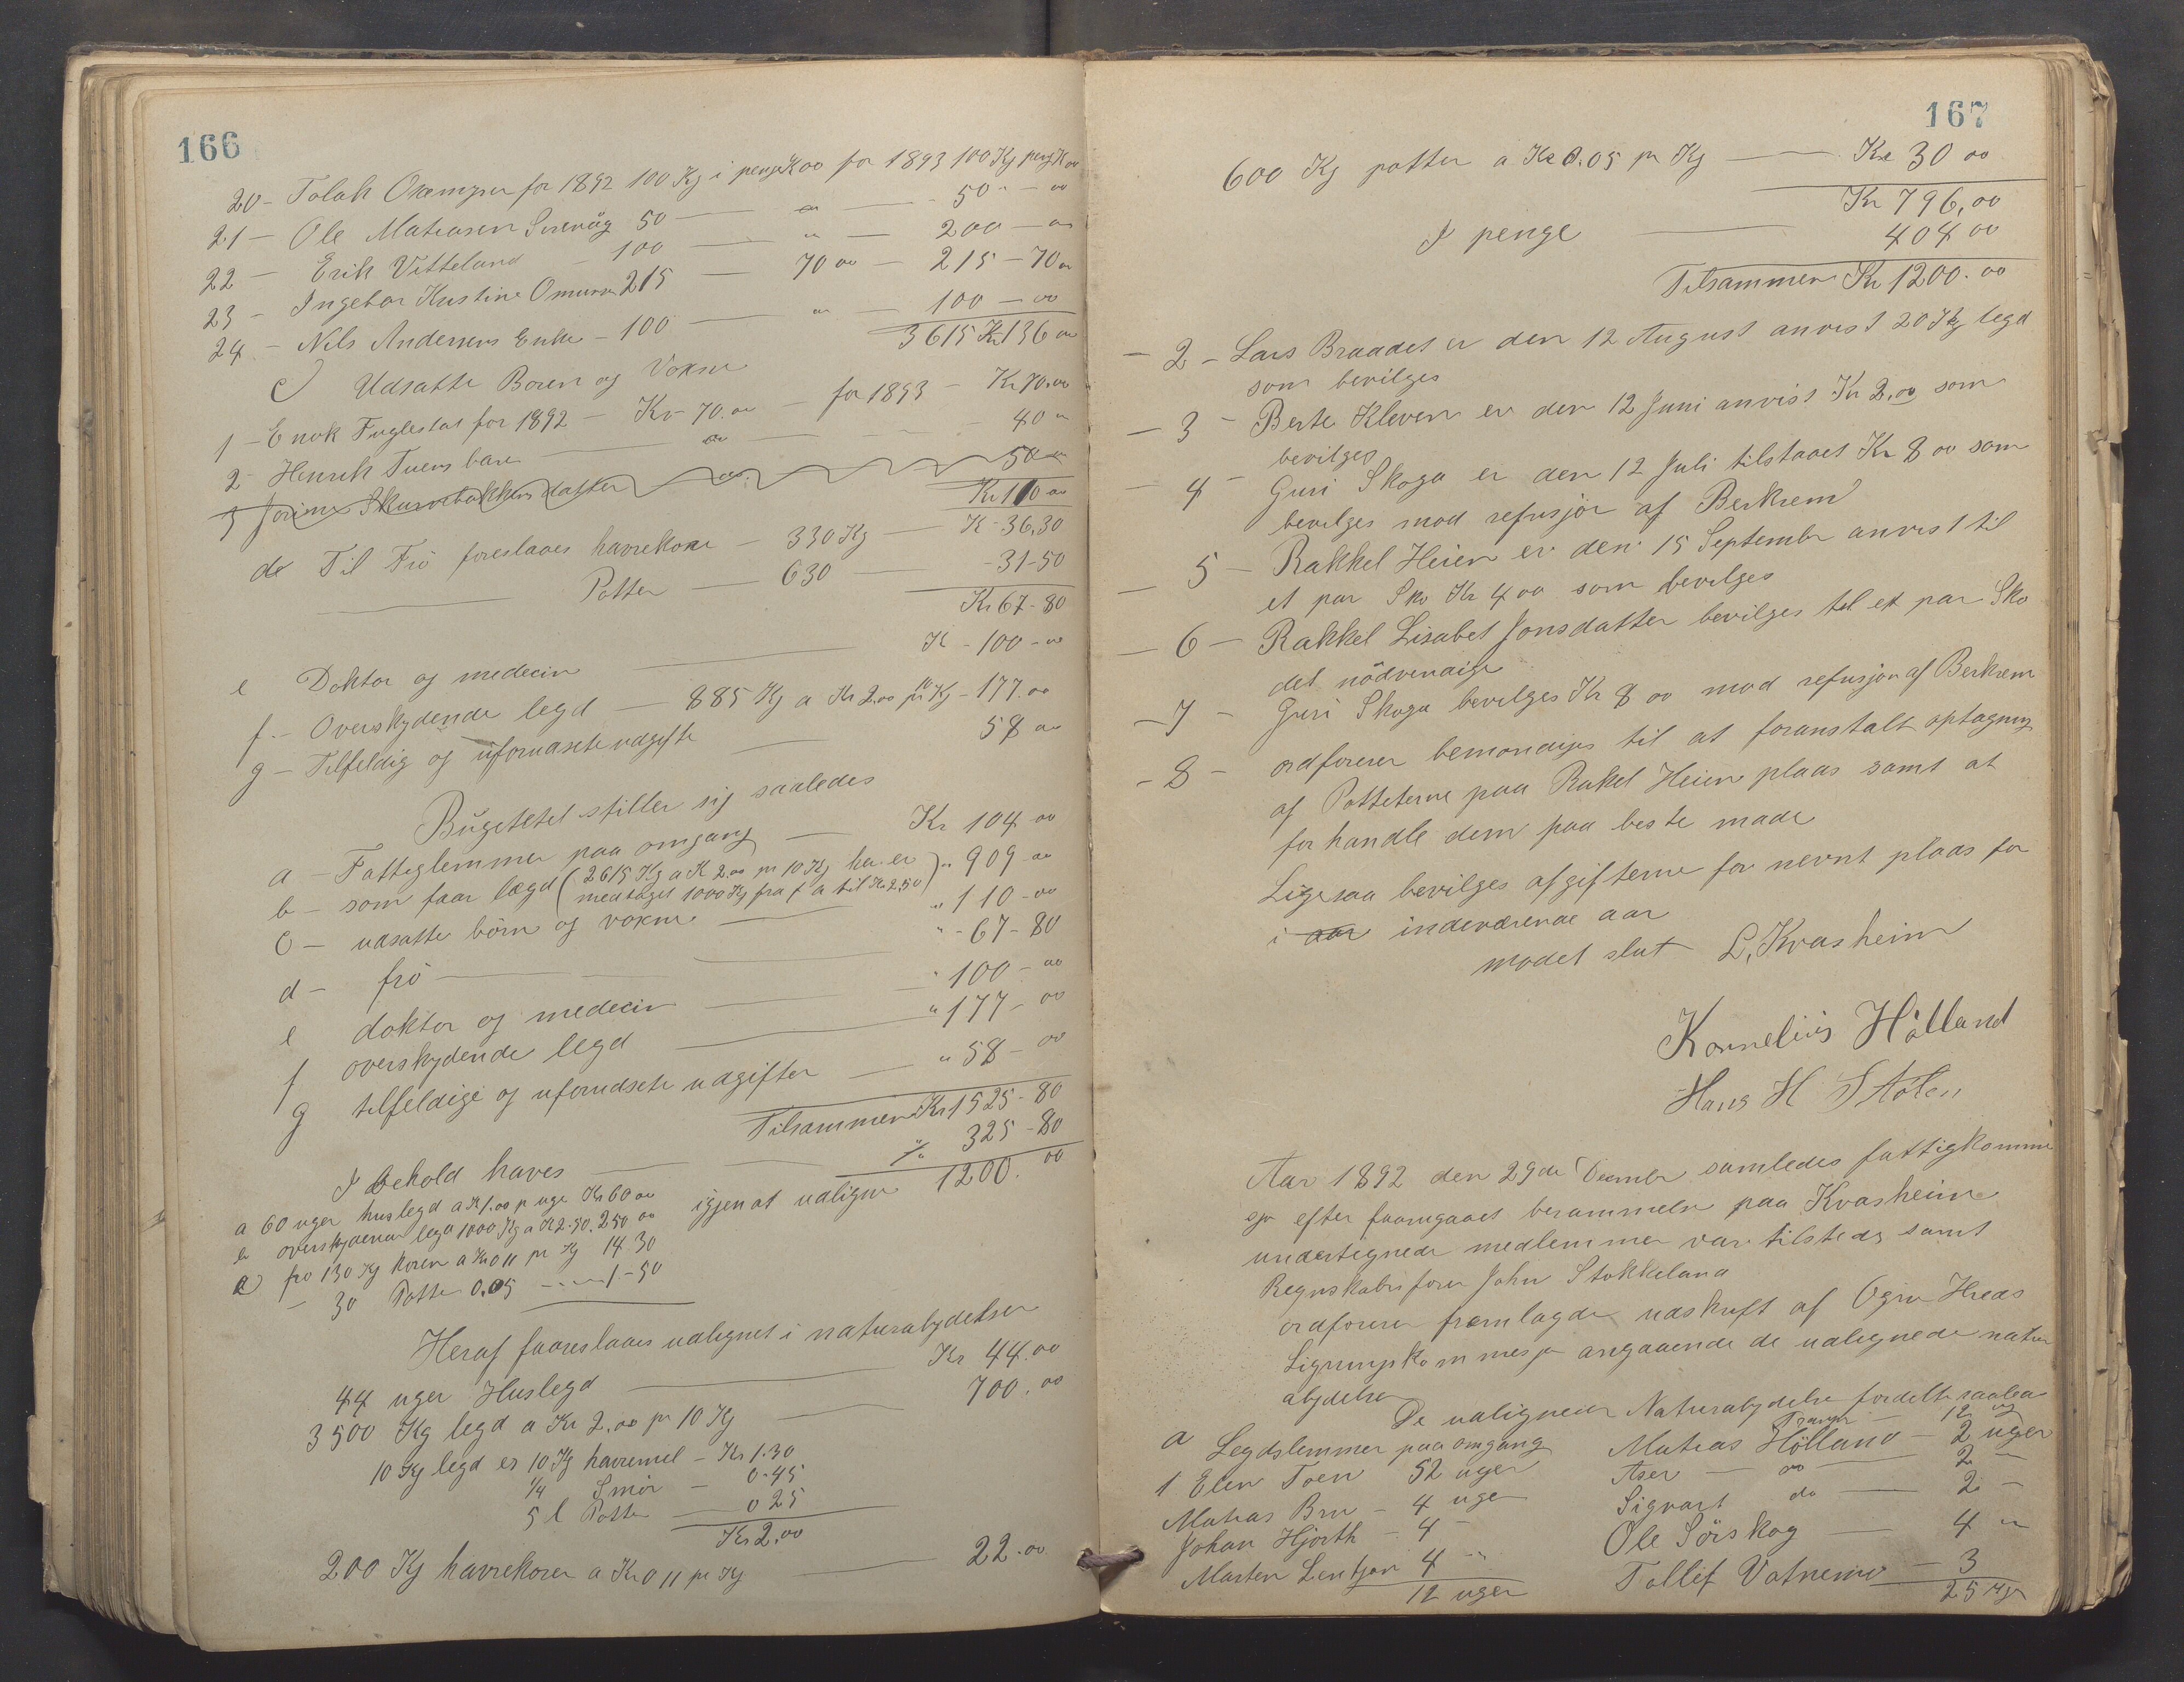 166
20 - Tolak for 1892 100 Kg i penge Kr 00 for 1893 100 Kg peng Kr 00
21 - Ole Matiasen Sirevåg 50 — " — 50 - 00
22 - Erik Vitteland - 100 — " — 200 - 00
23 - Ingebor Kristine 215 — 70 00 — 215 - 70 00
24 - Nils Andersens Enke - 100 — " — 100 - 00
3615 Kr 136 00
c) Udsatte Boren og Voksne
1 - Enok Fuglestad for 1892 - Kr 70.00 - for 1893 - Kr 70.00
2 Henrik Tuens barn — 00 — 40 00
3 Jorine Skarvebakken datter 00 50 00
Kr 110 00
d Til Frö foreslaaes havrekorn - 330 Kg — K - 36,30
Potter — 630 — - 31-50
Kr 67-80
e Doktor og medecin — K - 100 - 00
f - Overskydende legd - 885 Kg a Kr 2.00 pr 10 Kg - 177.00
g - Tilfeldig og uforudsete udgifte — 58 00
Bugettet stiller sig saaledes
a - Fattiglemmer paa omgang — Kr 104 00
b - som faar lægd (2615 Kg a K 2.00 pr 10 Kg her er medtaget 1000 Kg fra f a til Kr 2,50) " 909 - 00
C - udsatte börn og voksne — " 110 - 00
d - frö — " - 67 - 80
e doktor og medecin — " 100 - 00
f overskydende legd — " 177 - 00
g tilfeldige og uforudsete udgifter — " 58 - 00
Tilsammen Kr 1525 - 80
I behold haves — % 325 - 80
a 60 uger huslegd a K 1.00 p uge Kr 60 00 igjen at udligne 1200.00
b overskydende legd 1000 Kg a K 2.50. 250 00
c frö 130 Kg koren a Kr 0 11 pr Kg 14 30
- 30 Potter 0.05 — 1 - 50
Heraf foareslaaes udlignet i naturalydelser
44 uger Huslegd — Kr 44.00
3500 Kg legd a Kr 2.00 pr 10 Kg — 700.00
10 Kg legd er 10 Kg havremel - Kr 1.30
1/4 Smör - 0-45
5 l Potter — 0 25
Kr 2.00
200 Kg havrekoren a Kr 0 11 pr Kg — 22.00
167
600 Kg potter a Kr 0.05 pr Kg — Kr 30 00
Kr 796,00
I penge — 404 00
Tilsammen Kr 1200.00
- 2 - Lars Braadet er den 12 August anvist 20 Kg legd
som bevilges
- 3 - Berte Kleven er den 12 Juni anvist Kr 2.00 som
bevilges
- 4 - Guri Skoga er den 12 Juli tilstaaet Kr 8 00 som
bevilges mod refusjon af Berkrem
- 5 - Rakkel Heien er den 15 September anvist til
et par Sko Kr 4 00 som bevilges
- 6 - Rakkel Lisabet Jonsdatter bevilges til et par Sko
det nödvendige
- 7 - Guri Skoga bevilges Kr 8 00 mod refusjon af Berkrem
- 8 - ordforerer bemondiges til at foranstalt optagning
af Potteterne paa Rakel Heien plads samt at
forhandle dem paa beste made
Ligesaa bevilges afgifterne for nevnt plads for
i aar indeværende aar
modet slut L. Kvasheim
Kornelius Hålland
Hans H Stölen
Aar 1892 den 29de December samledes fattigkommi
sjo efter foaregaaet berammelse paa Kvasheim
undertegnede medlemmer var tilstede samt
Regnskabsforer John Stokkeland
ordforerer fremlagde udskrift af Ogne Hreds
Ligningskommesjo angaaende de udlignede natur
alydelser
De udlignede Naturalydelse fordelte saalea
a Legdslemmer paa omgang
1 Elen Toen 52 uger
Matias Bru - 4 uger
Johan Hjorth - 4 -
Marten Lentjon 4 "
12 uger
12 ug
Matias Hölland - 2 uger
Aser — do — 2 -
Sigvart do — 2 -
Ole Sörskog — 4 "
Tollef Vatnemo — 3
25 uger